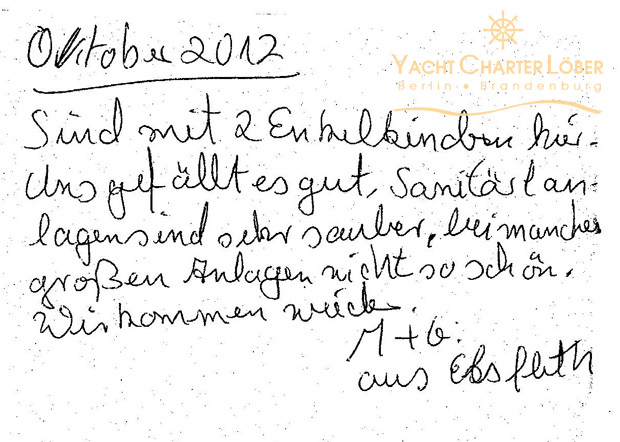 Oktober 2012
YACHT CHARTER LÖBER
Berlin • Brandenburg
Sind mit 2 Enkelkindern hier.
Uns gefällt es gut, Sanitärlan-
lagen sind sehr sauber, bei manchen
großen Anlagen nicht so schön.
Wir kommen wieder.
M + G.
aus